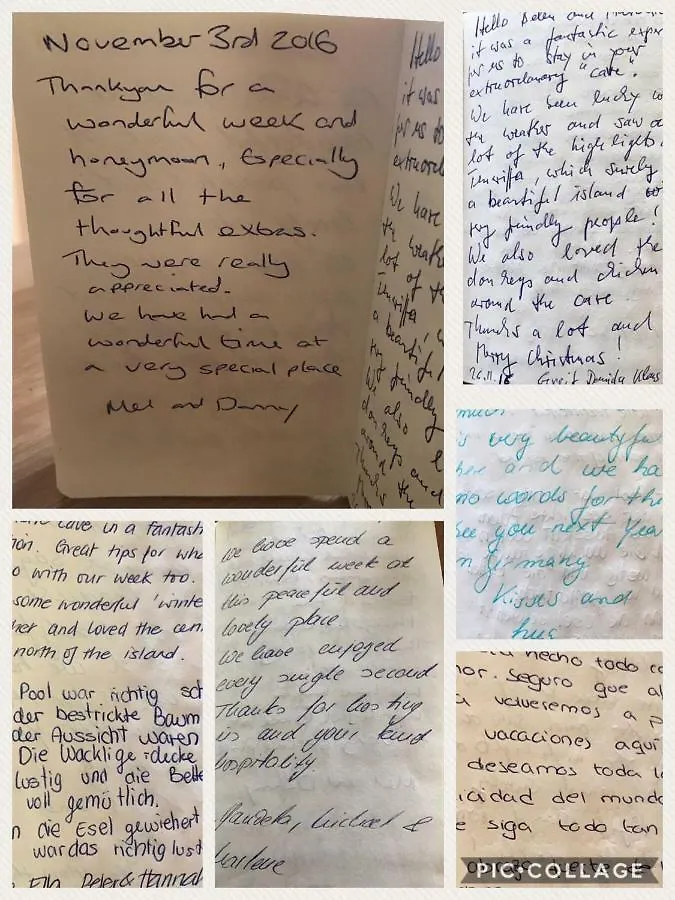 November 3rd 2016
Thankyou for a
wonderful week and
honeymoon, Especially
for all the
thoughtful extras.
They were really
appreciated.
We have had a
wonderful time at
a very special place
Mel and Danny
Hello
it was
for us to
extraord
We have
the weather
lot of the
a beautiful
very friendly
We also
donkeys and
around the
Thanks
Hello Belen and
it was a fantastic exper
for us to stay in your
extraordinary "cave".
We have been lucky w
the weather and saw a
lot of the highlights
Teneriffa, which surely
a beautiful island
very friendly people!
We also loved the
donkeys and chicken
around the cave.
Thanks a lot and
Merry Christmas!
Klaus
much
is very beautyfu
her and we ha
no words for the
see you next year
n germany
Kisses and
hug
cave in a fantasti
ion. Great tips for wha
o with our week too.
some wonderful 'winte
her and loved the cen
north of the island.
Pool war richtig sch
der bestrickte Baum
der Aussicht waren
Die Wacklige decke
lustig und die Bette
voll gemütlich.
n die Esel gewiehert
war das richtig lust
Peter & Hannah
We have spend a
wonderful week at
this peaceful and
lovely place.
We have enjoyed
every single second
Thanks for hosting
us and your kind
hospitality.
Michael &
hecho todo co
nor. Seguro que al
volveremos a p
vacaciones aquí
deseamos toda l
icidad del mundo
e siga todo tan
PIC•COLLAGE